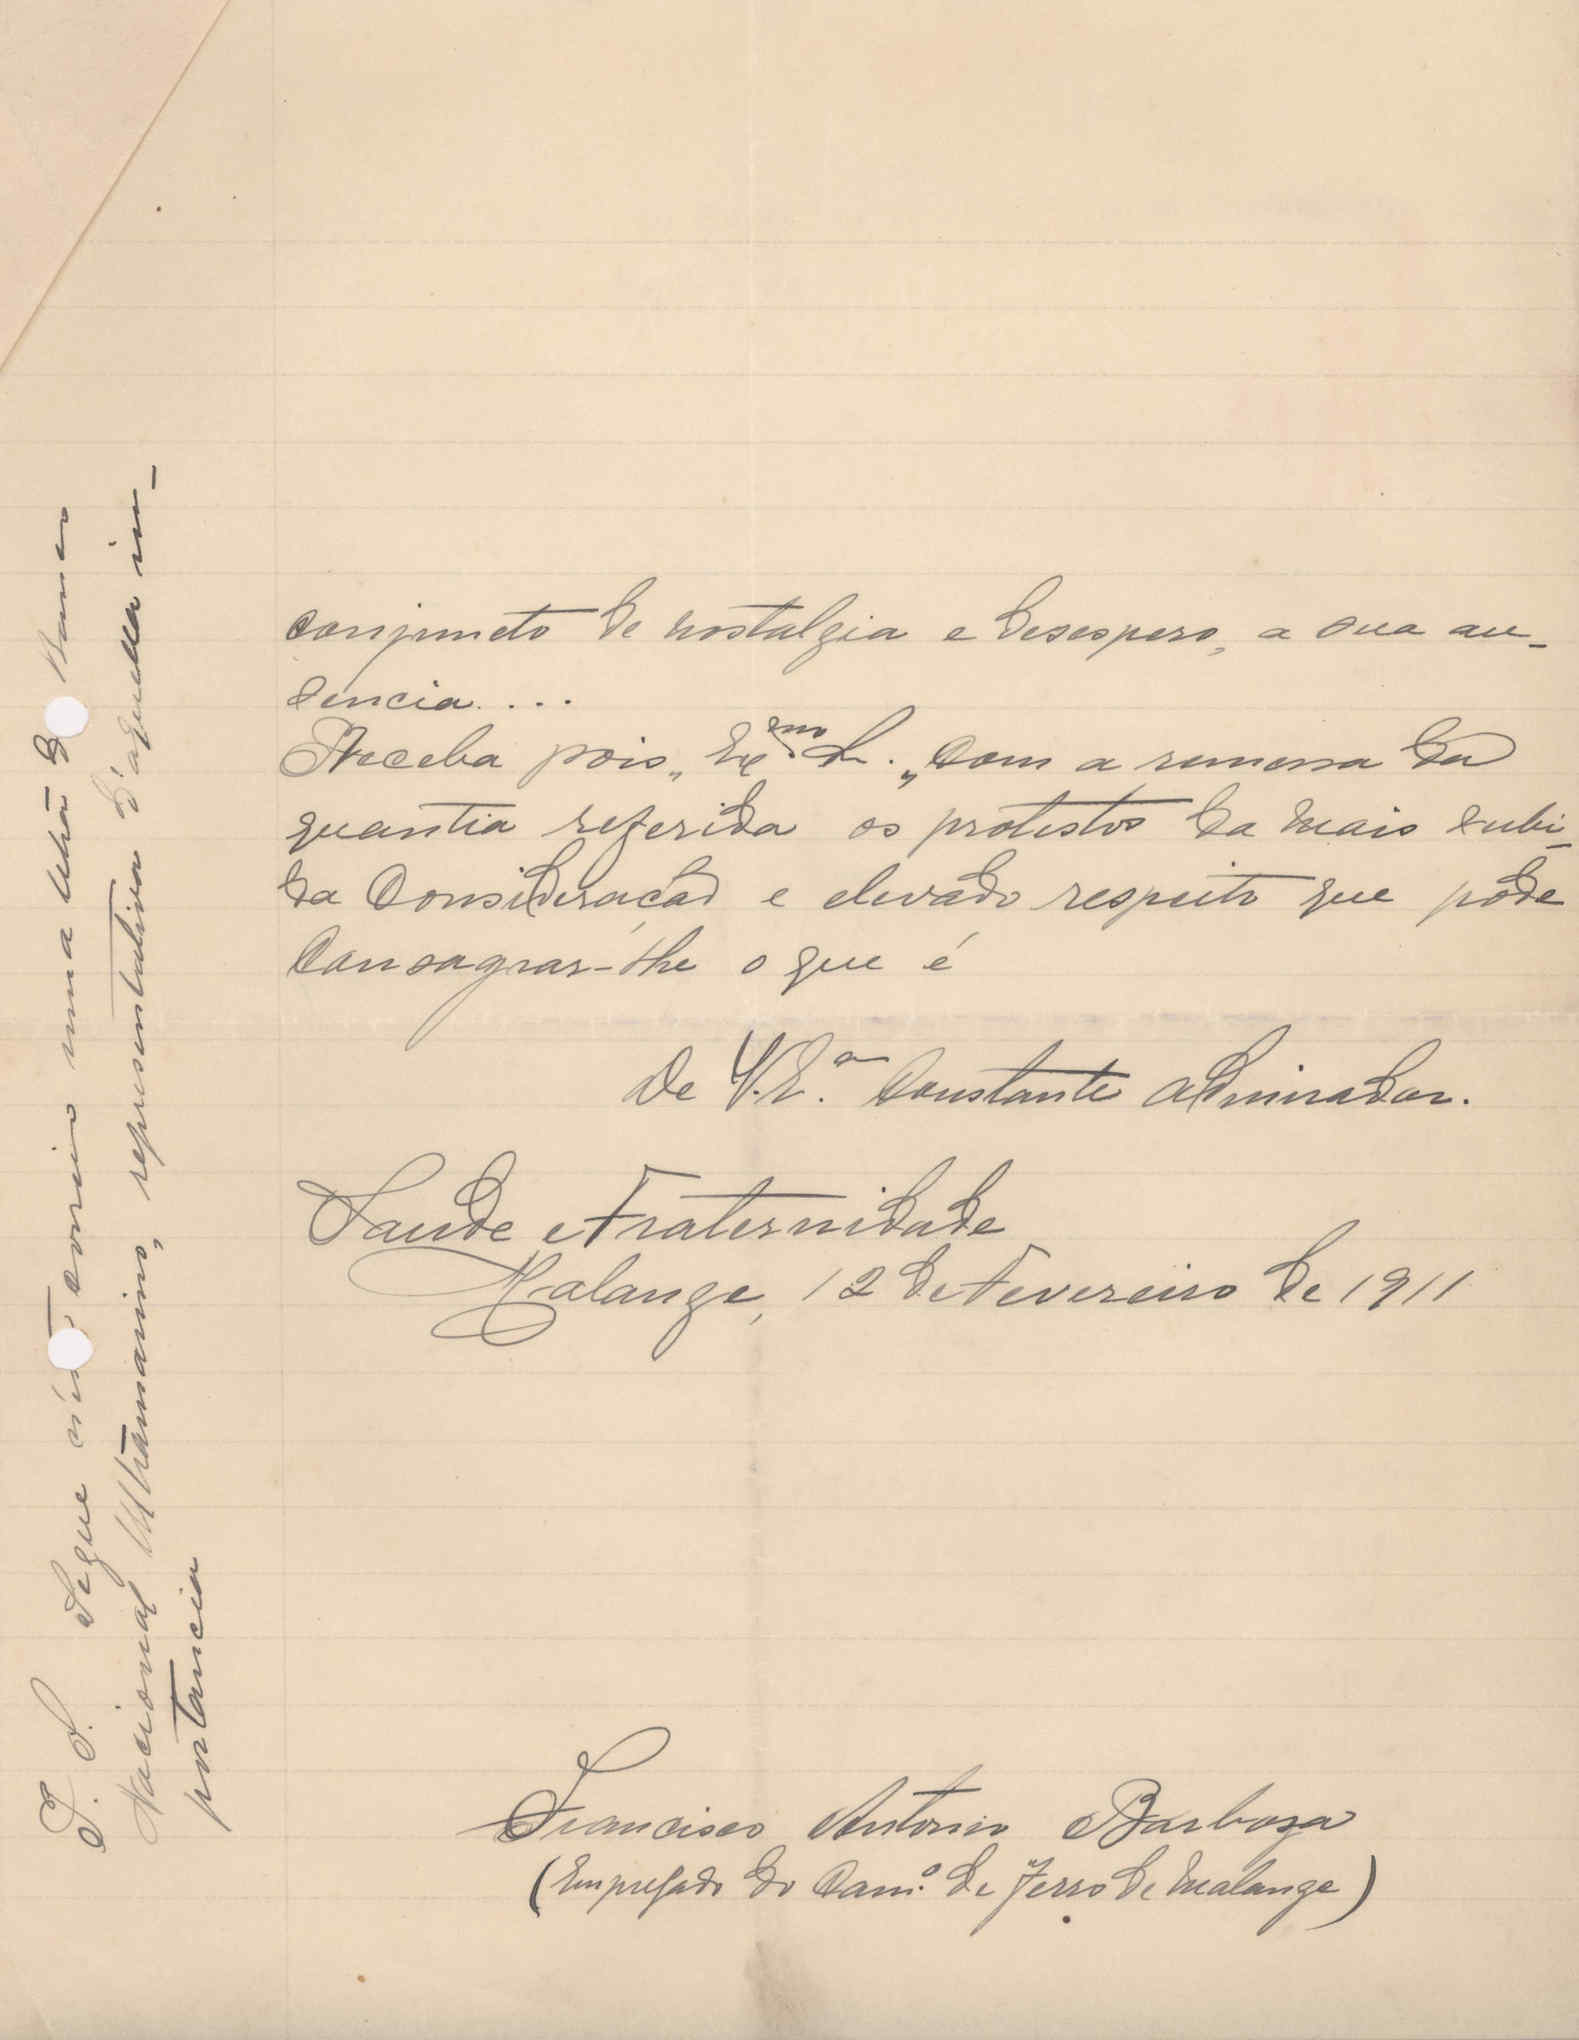 conjuncto de nostalgia e desespero, a sua au-
sencia....
Receba pois,, Ex.mo Sr. ,, com a remessa da
quantia referida os protestos da mais subi-
da Consideração e elevado respeito que póde
Consagrar-lhe o que é
De V. E.a Constante admirador.
Saude e Fraternidade
Malange, 12 de Fevereiro de 1911
Francisco Antonio Barboza
(Empregado do Cam.o de Ferro de Malange)
P. S. Segue correio uma letra do Banco
Nacional Ultramarino, representativa d'aquella im-
portancia